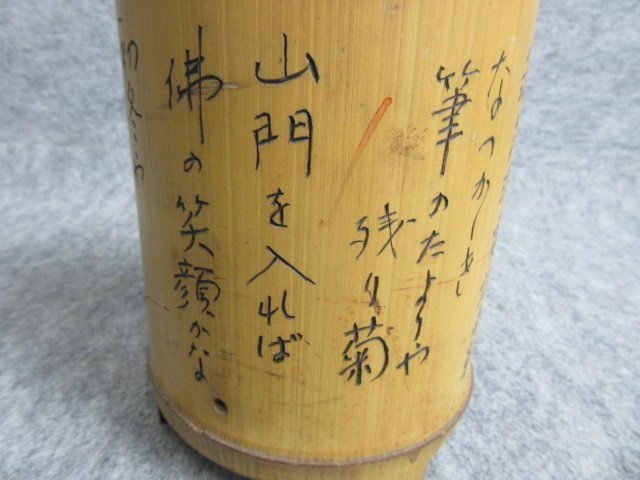 なつかしき
筆のたよりや
残り菊
山門を入れば
佛の笑顔かな